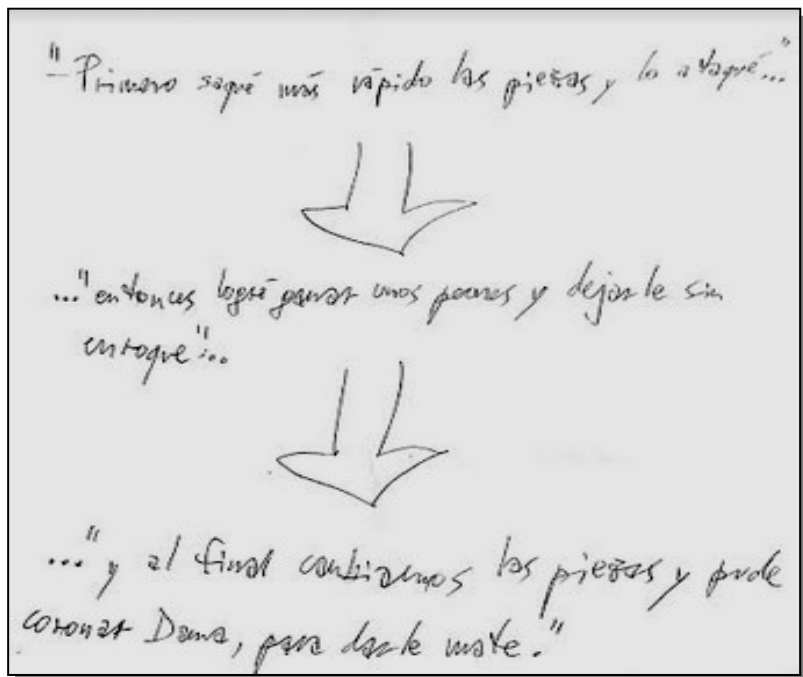 "-Primero saqué más rápido las piezas y lo ataqué..."
..."entonces logré ganar unos peones y dejarle sin
enroque"...
..."y al final cambiamos las piezas y pude
coronar Dama, para darle mate."